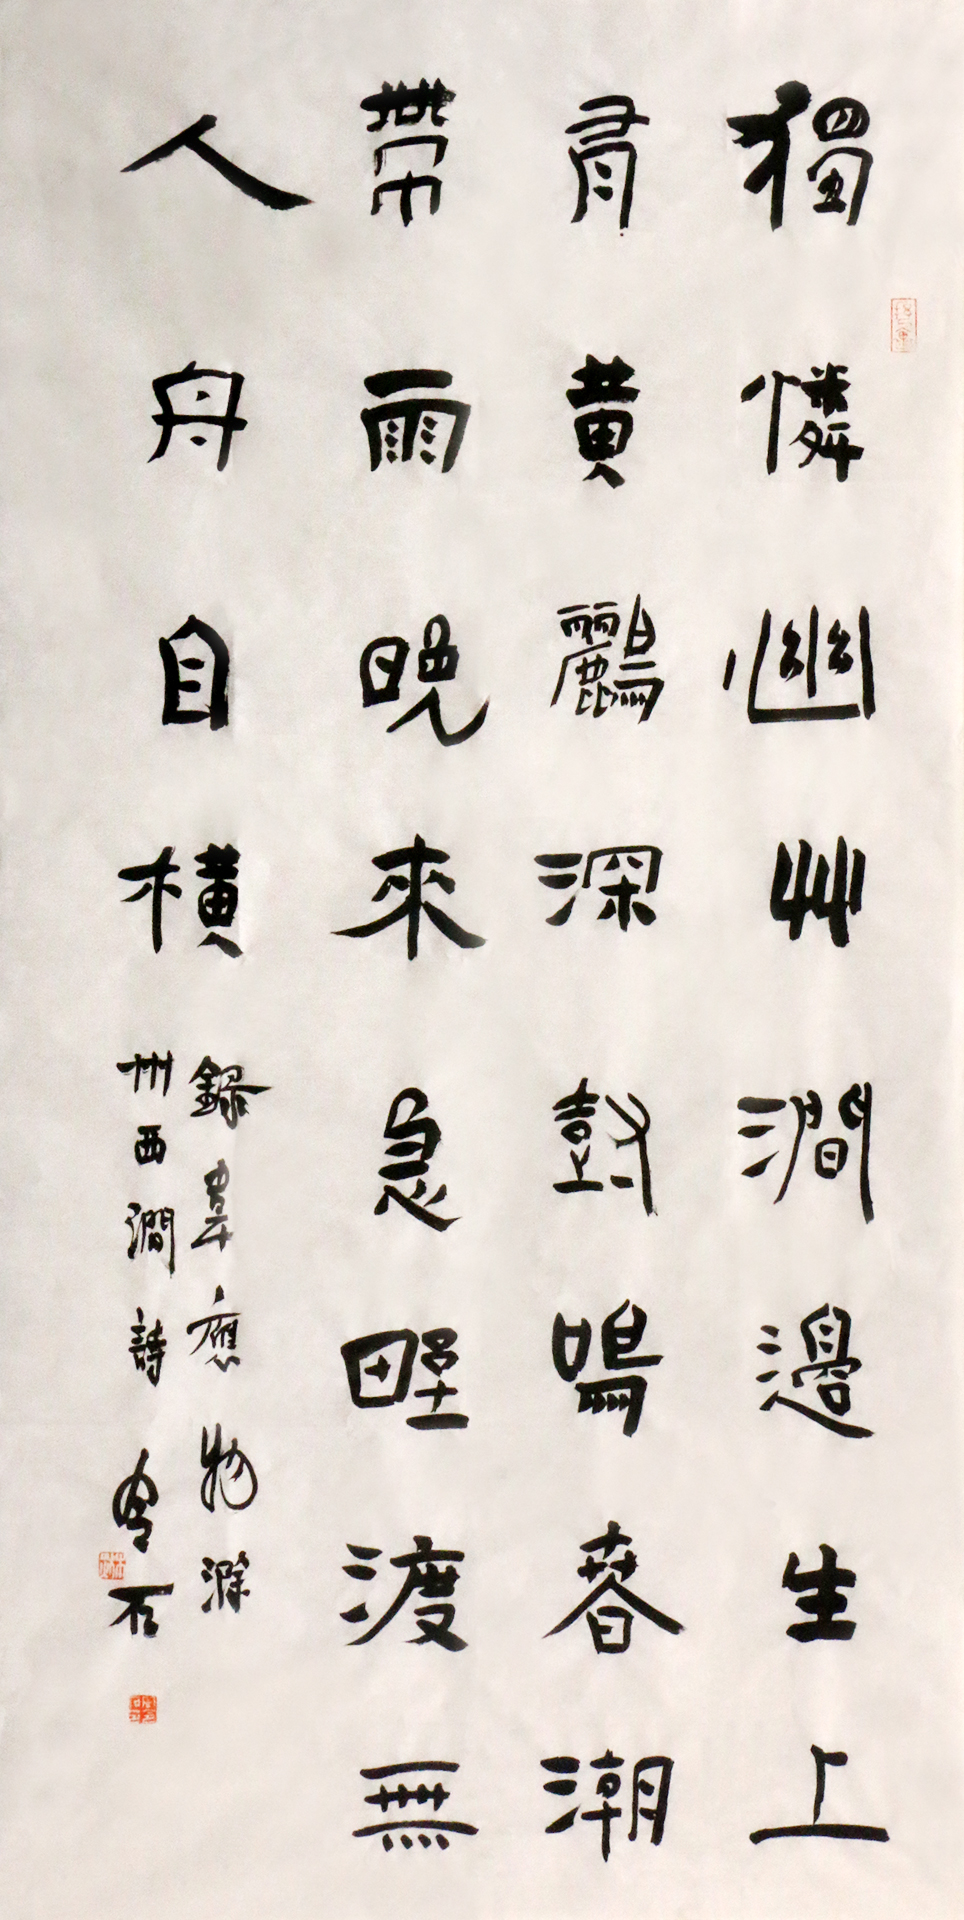 獨憐幽艸澗邊生上
有黃鸝深尌鳴春潮
帶雨晚來急野渡無
人舟自橫
錄韋應物滁
州西澗詩 石